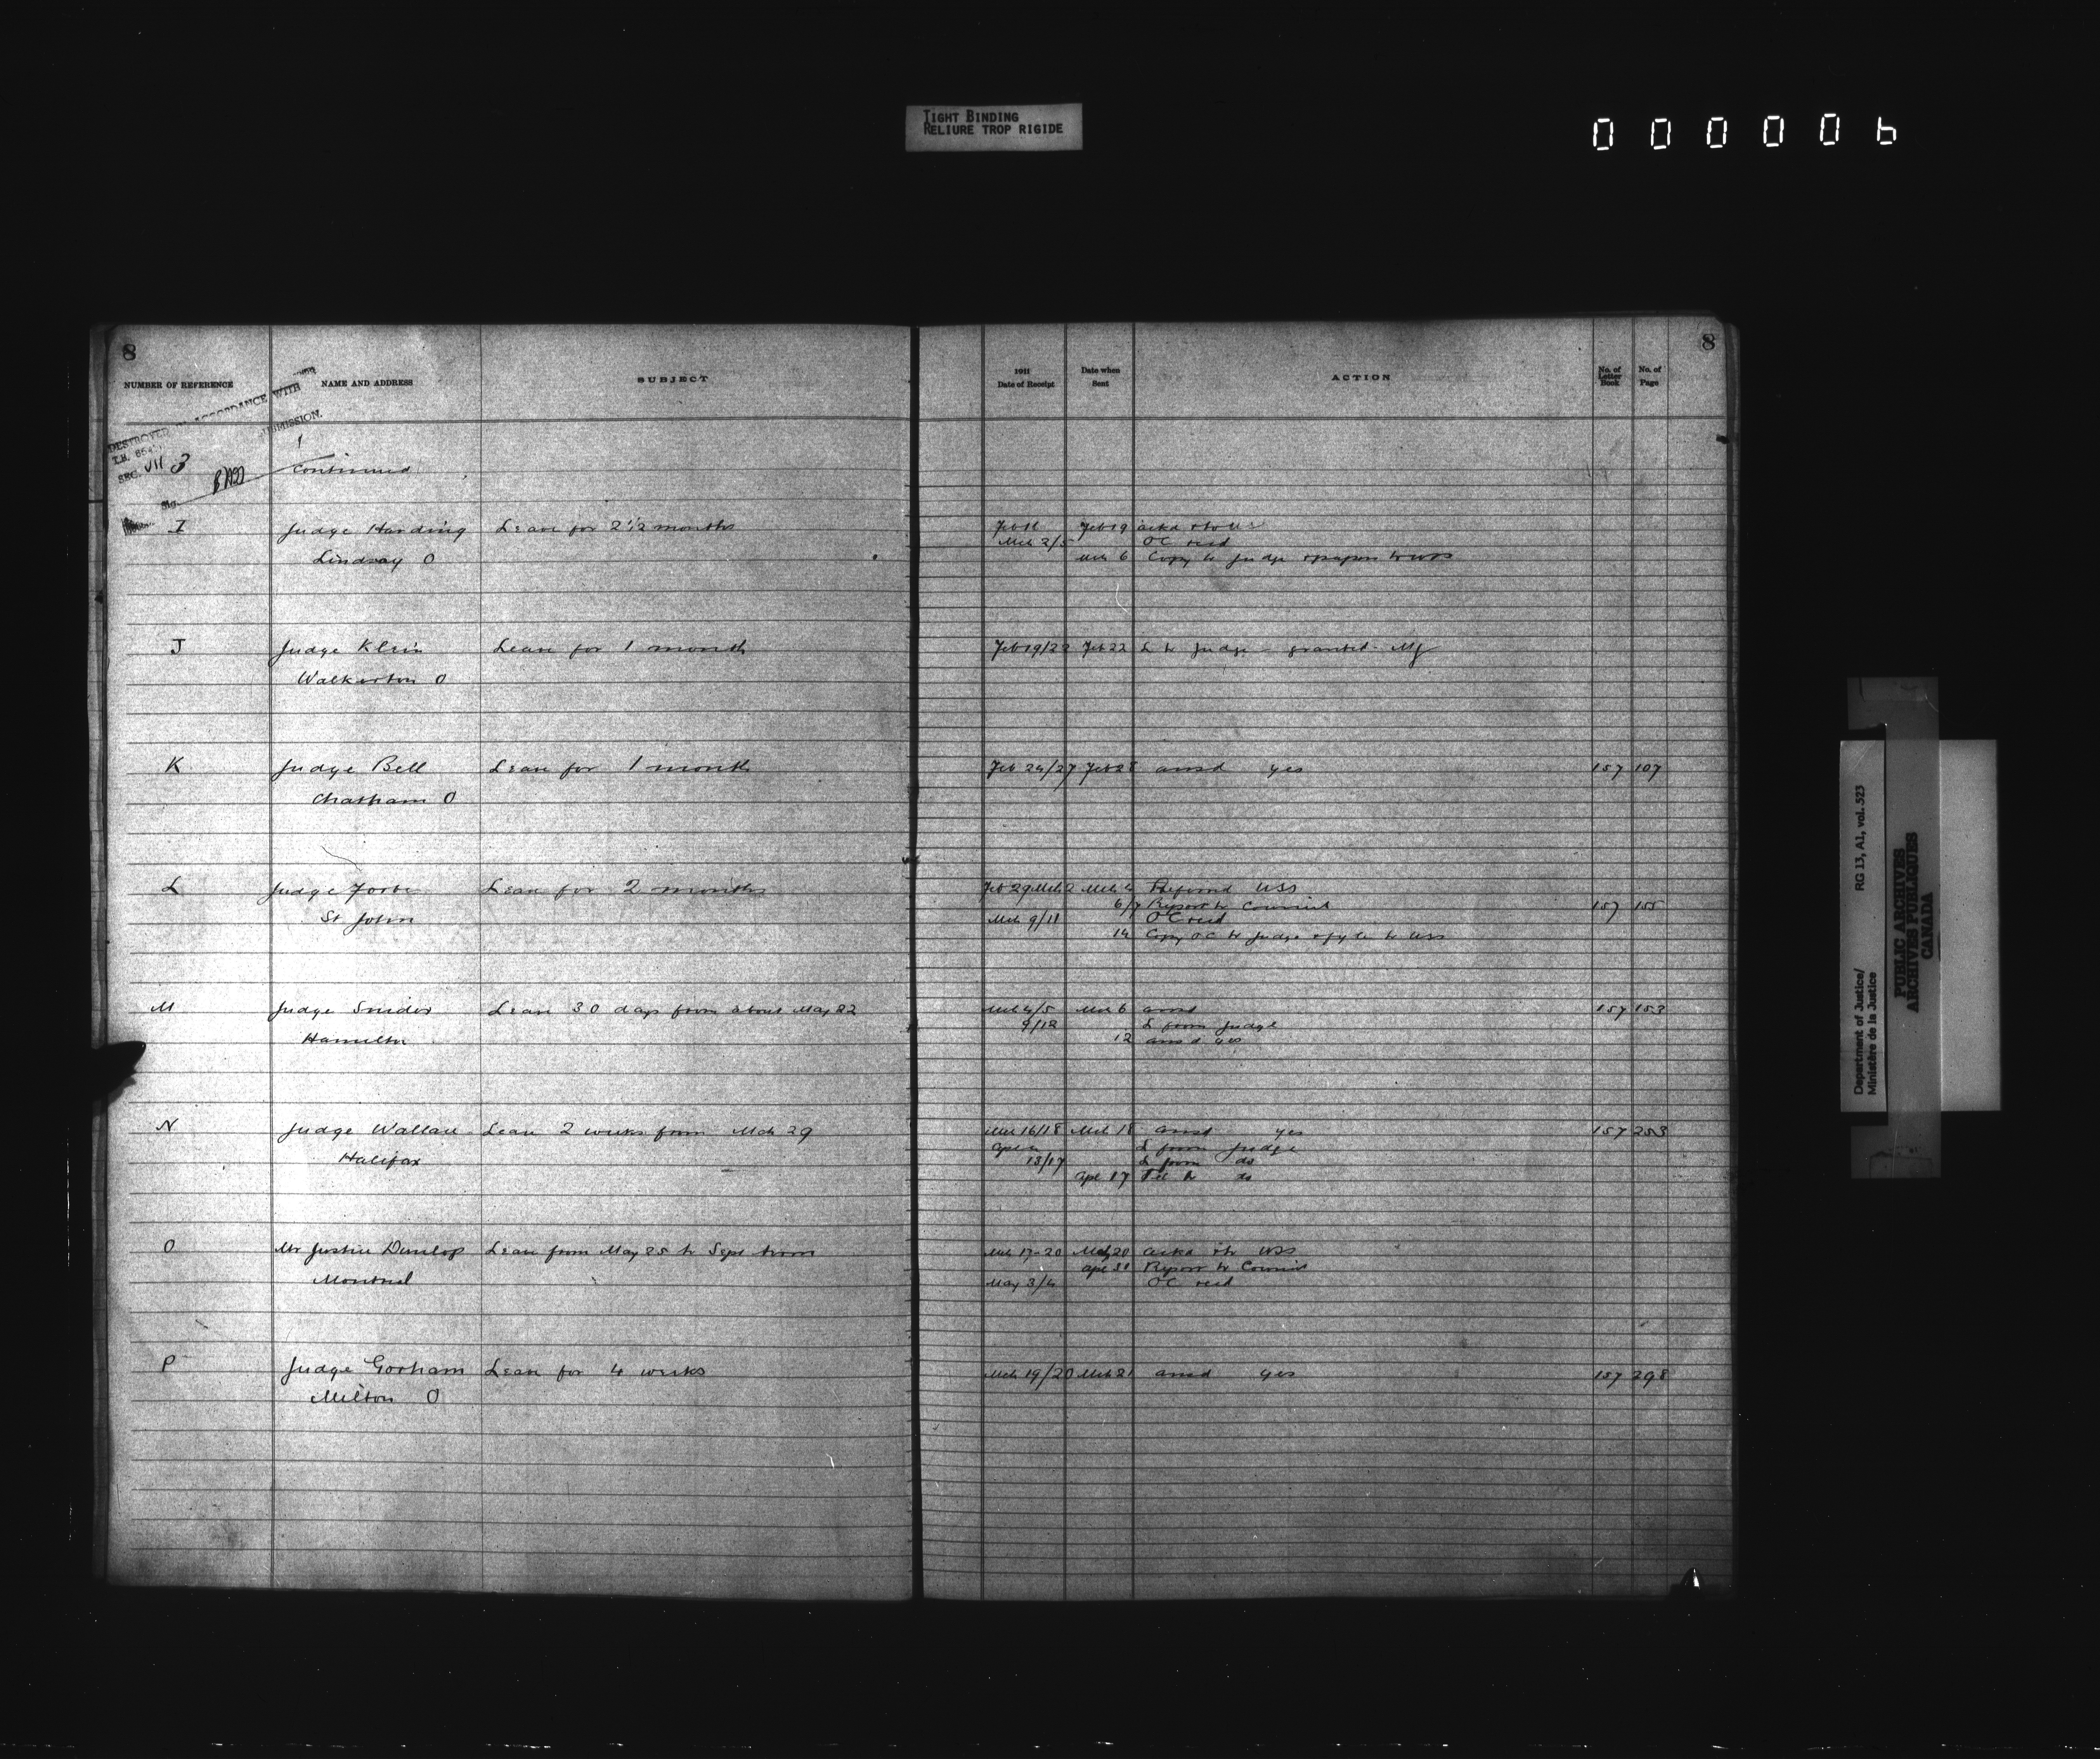 TIGHT BINDING
RELIURE TROP RIGIDE
000006
8
8
NUMBER OF REFERENCE NAME AND ADDRESS SUBJECT 1911 Date of Receipt Date when Sent ACTION No. of Letter Book No. of Page
DESTROYED ACCORDANCE WITH
T.B.
SEC. VII 3
1
Continued
I Judge Harding Leave for 2 1/2 months Feb 19 ackd
Mch 2/5 OC recd
Lindsay O Mch 6 Copy to Judge
J Judge Klein Leave for 1 month Feb 19/22 Feb 22 L to Judge - granted - MJ
Walkerton O
K Judge Bell Leave for 1 month Feb 24/27 Feb 28 ansd yes 157 107
Chatham O
L Judge Forbes Leave for 2 months Feb 29 Mch 2 Mch 4 Referred USS
6/7 Report to Council 157 155
St John Mch 9/11 OC recd
14 Copy OC to Judge to USS
M Judge Snider Leave 30 days from about May 22 Mch 4/5 Mch 6 ansd 157 153
9/12 L from Judge
Hamilton 12 ansd yes
N Judge Wallace Leave 2 weeks from Mch 29 Mch 16/18 Mch 18 ansd yes 157 253
Apl L from Judge
Halifax 13/17 L from do
Apl 17 Tel to do
O Mr Justice Dunlop Leave from May 25 to Sept Mch 17-20 Mch 20 ackd USS
Apl Report to Council
Montreal May 3/4 OC recd
P Judge Gorham Leave for 4 weeks Mch 19/20 Mch 21 ansd yes 157 298
Milton O
Department of Justice/ RG 13, A1, vol. 523
Ministère de la Justice
PUBLIC ARCHIVES
ARCHIVES PUBLIQUES
CANADA